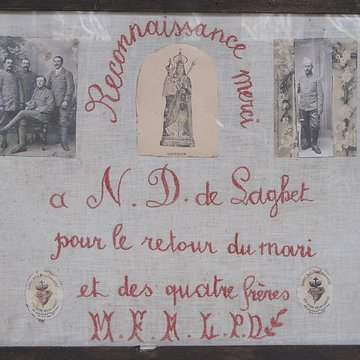 Reconnaissance merci
a N. D. de Laghet
pour le retour du mari
et des quatre frères
M. F. A. L. P. D.